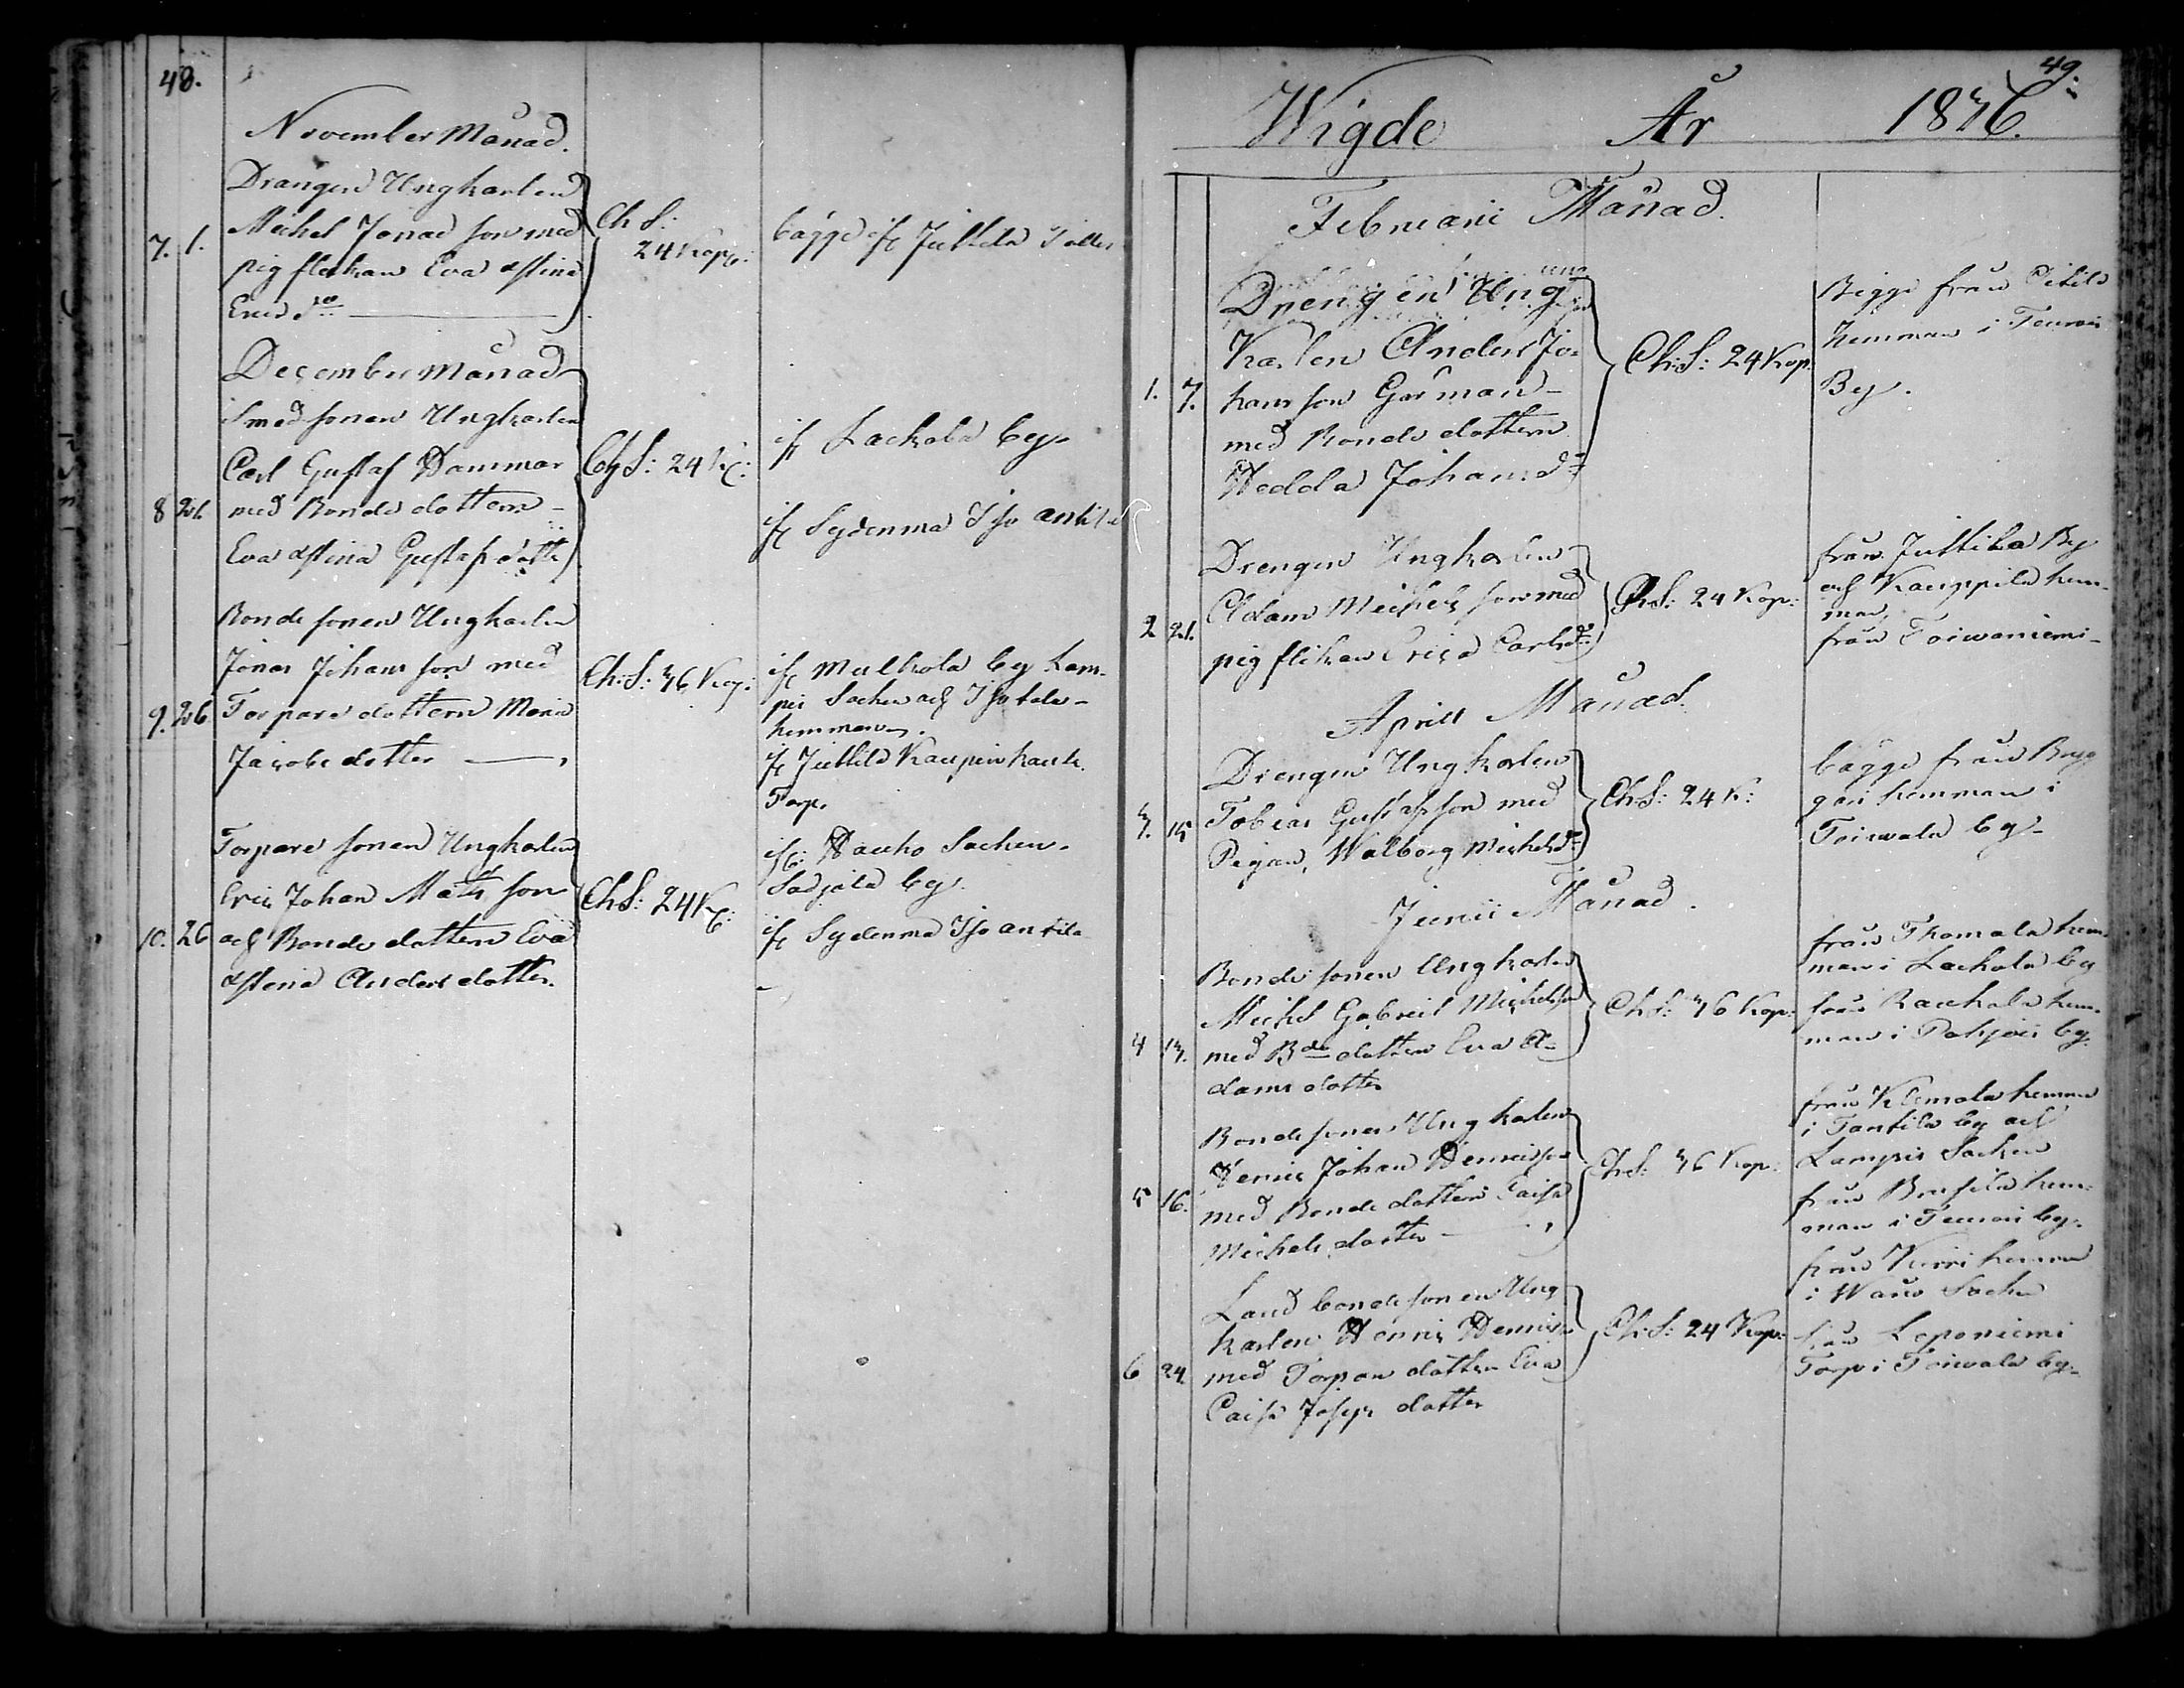 48.
November Månad.
Drängen Ungkarlen
Michel Jonas son med
pig flickan Eva Stina
Erics dr
7. 1.
Ch S:
24 Kop:
bägge ifr Juttila
December Månad
Smed sonen Ungkarlen
Carl Gustaf Hammar
med Bonde dottern
Eva Stina Gustafs dotter
8 21.
Ch S: 24 K:
ifr Lackola by
ifr Sydenma Iso antila
Bonde sonen Ungkarlen
Jonas Johans son med
Torpare dottern Maria
Jacobs dotter
9. 26
Ch: S: 36 Kop:
ifr Mulkola by Lam-
pis Socken och Isotalo
hemman.
ifr Juttila
Torp.
Torpare sonen Ungkarlen
Eric Johan Mats son
och Bonde dottern Eva
Stina Anders dotter.
10. 26
Ch S: 24 K:
ifr Hauho Socken
by.
ifr Sydenma Iso antila
49.
Wigde År 1836.
Februarii Månad.
Drengen Ung
Karlen Anders Jo-
hans son Garman
med Bonde dottern
Hedda Johans dr
1. 7.
Ch: S: 24 Kop.
Begge från
hemman i
By.
Drengen Ungkarlen
Adam Michels son med
pig flikan Erica Carls dr
2 21.
Ch S: 24 Kop:
från Juttila By
och Kauppila hem-
man,
från Toiwaniemi
Aprill Månad.
Drengen Ungkarlen
Tobias Gustafs son med
Pigan, Walborg Michels dr
3. 15
Ch S: 24 K:
bägge från Bryg
gari hemman i
Toiwala by
Junii Månad.
Bonde sonen Ungkarlen
Michel Gabriel Michelsson
med Bde dottern Eva A-
dams dotter
4 13.
Ch S: 36 Kop:
från Thomala hem-
man i Lackola by
från Raukola hem-
man i Pohjois by.
Bonde sonen Ungkarlen
Henric Johan Henricsson
med Bonde dottern Caisa
Michels dotter
5 16.
Ch S: 36 Kop:
från Klemola hemman
i Tantila by och
Lampis Socken
från hem-
man i by.
Land bonde sonen Ung
karlen Henric Henrics
med Torpare dottern Eva
Caisa Joseps dotter
6 24.
Ch: S: 24 Kop:
från Kurri hemman
i Wånå Socken
från Leponiemi
Torp i Toiwala by.